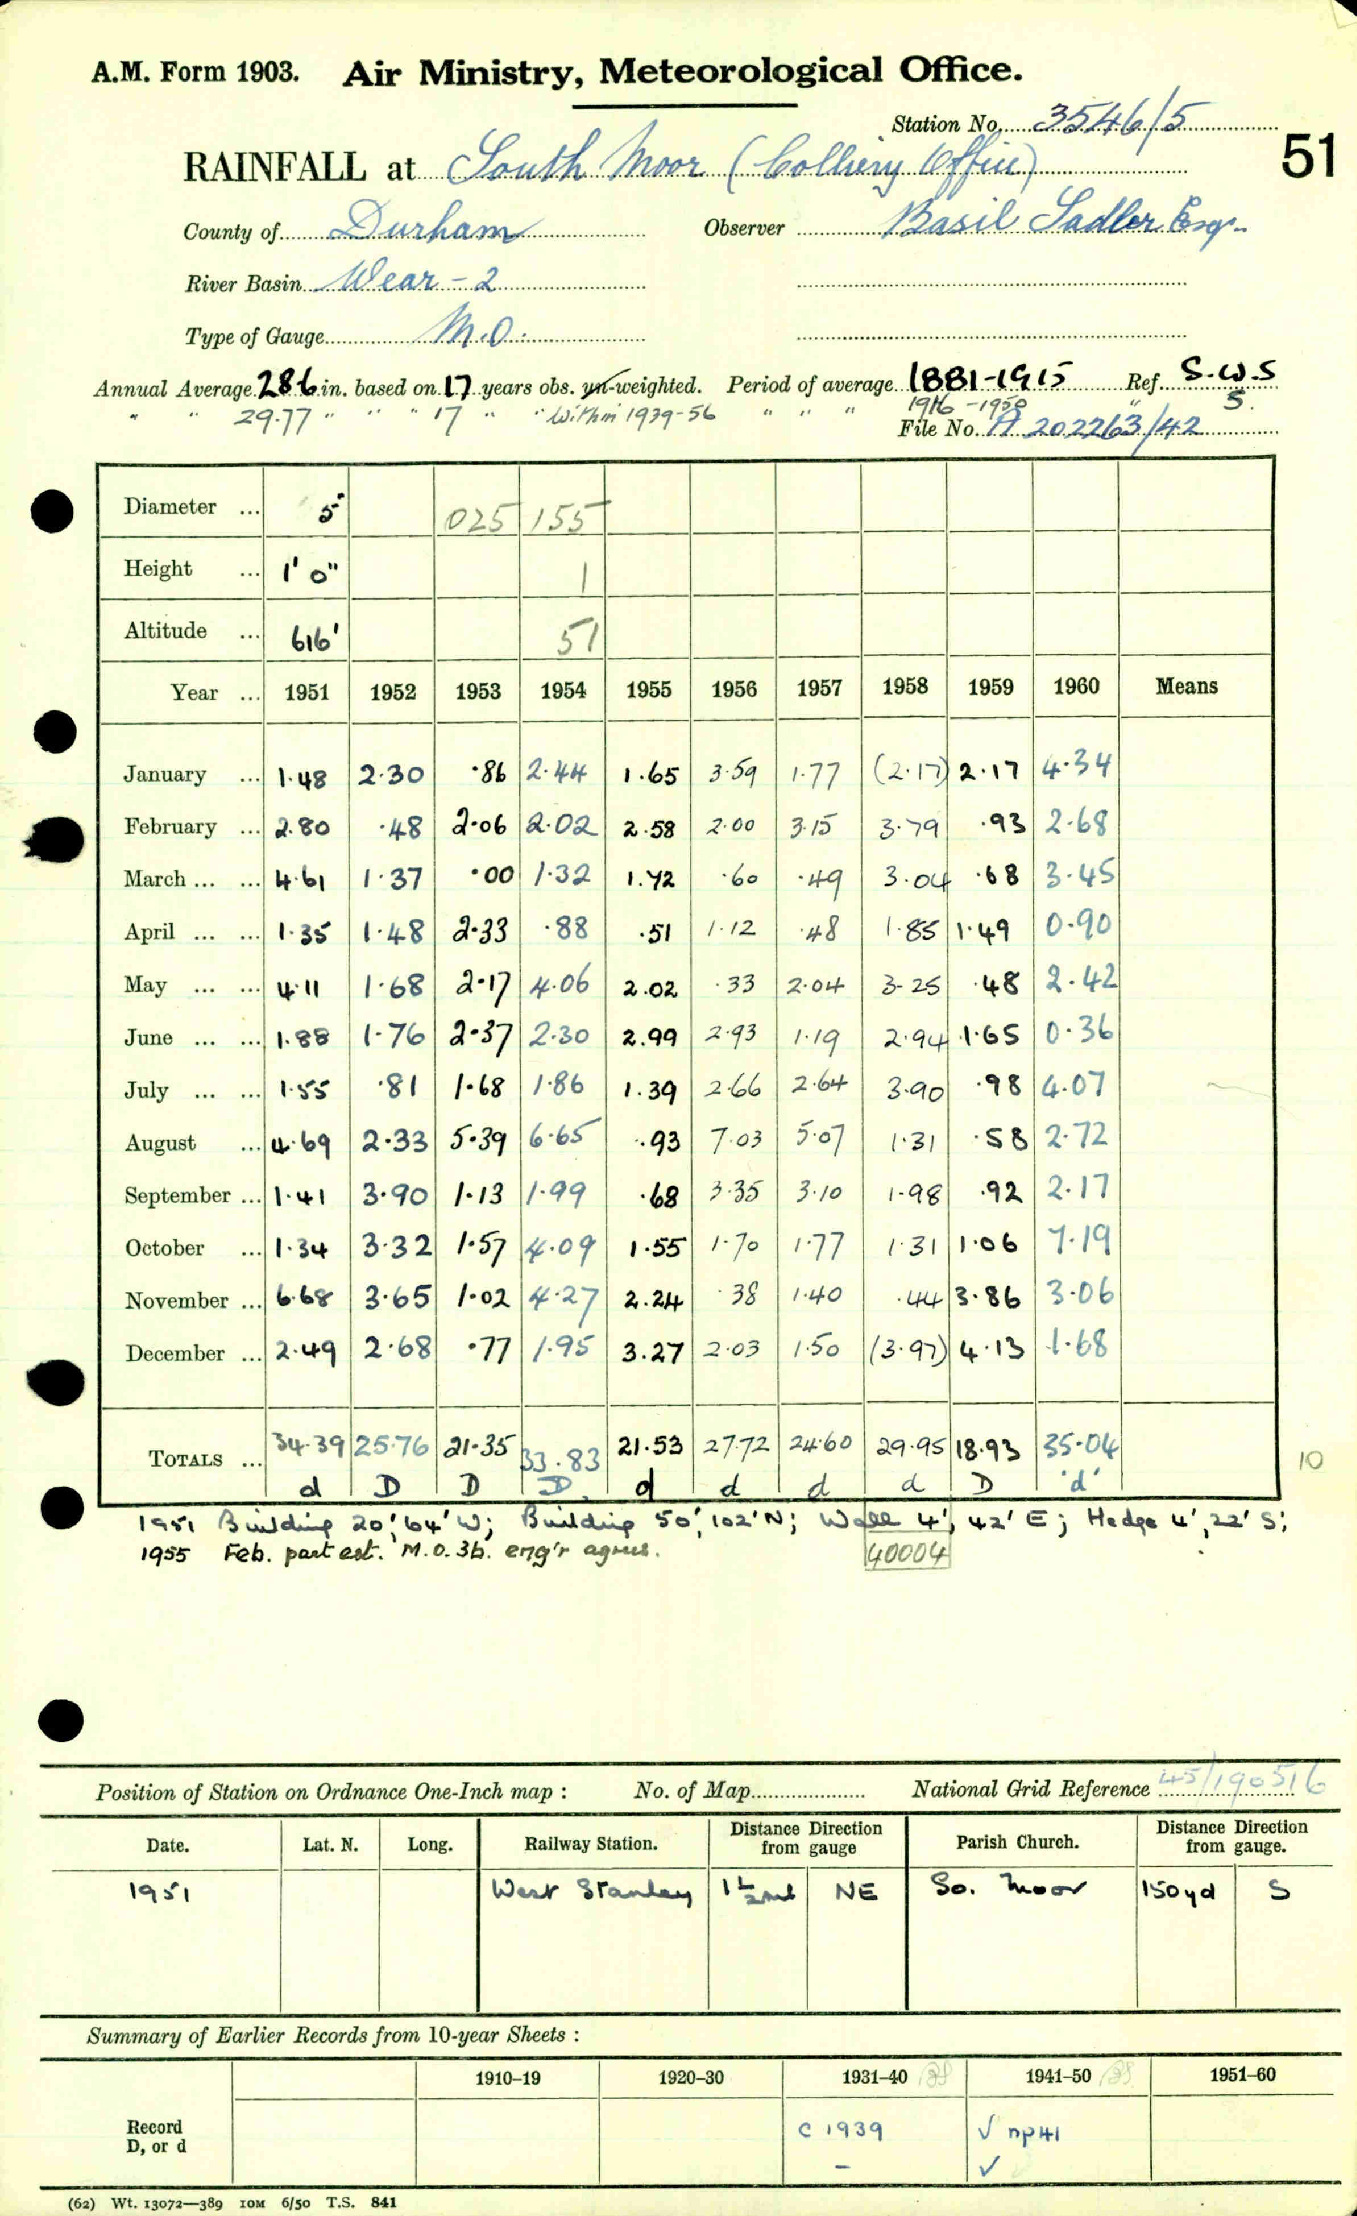 A.M. Form 1903. Air Ministry, Meteorological Office.
Station No. 3546/5
51
RAINFALL at South Moor (Colliery Office)
County of Durham Observer Basil Sadler Esq.
River Basin Wear - 2
Type of Gauge M.O.
Annual Average 28.6 in. based on 17 years obs. un-weighted. Period of average 1881-1915 Ref. S.W.S
" " 29.77 " " " 17 " " Within 1939-56 " " " 1916-1950 " S.
File No. A 202263/42
Diameter ... 5" 025 155
Height ... 1' 0" 1
Altitude ... 616' 51
Year ... 1951 1952 1953 1954 1955 1956 1957 1958 1959 1960 Means
January ... 1.48 2.30 .86 2.44 1.65 3.59 1.77 (2.17) 2.17 4.34
February ... 2.80 .48 2.06 2.02 2.58 2.00 3.15 3.79 .93 2.68
March ... ... 4.61 1.37 .00 1.32 1.72 .60 .49 3.04 .68 3.45
April ... ... 1.35 1.48 2.33 .88 .51 1.12 .48 1.85 1.49 0.90
May ... ... 4.11 1.68 2.17 4.06 2.02 .33 2.04 3.25 .48 2.42
June ... ... 1.88 1.76 2.37 2.30 2.99 2.93 1.19 2.94 1.65 0.36
July ... ... 1.55 .81 1.68 1.86 1.39 2.66 2.64 3.90 .98 4.07
August ... 4.69 2.33 5.39 6.65 .93 7.03 5.07 1.31 .58 2.72
September ... 1.41 3.90 1.13 1.99 .68 3.35 3.10 1.98 .92 2.17
October ... 1.34 3.32 1.57 4.09 1.55 1.70 1.77 1.31 1.06 7.19
November ... 6.68 3.65 1.02 4.27 2.24 .38 1.40 .44 3.86 3.06
December ... 2.49 2.68 .77 1.95 3.27 2.03 1.50 (3.97) 4.13 1.68
TOTALS ... 34.39 25.76 21.35 33.83 21.53 27.72 24.60 29.95 18.93 35.04 10
d D D D. d d d d D 'd'
1951 Building 20', 64' W; Building 50', 102' N; Wall 4', 42' E; Hedge 4', 22' S;
1955 Feb. part est. M.O.3b. eng'r agrees. 40004
Position of Station on Ordnance One-Inch map : No. of Map National Grid Reference 45/190516
Date. Lat. N. Long. Railway Station. Distance Direction from gauge Parish Church. Distance Direction from gauge.
1951 West Stanley 1 1/2 ml NE So. Moor 150 yd S
Summary of Earlier Records from 10-year Sheets :
1910–19 1920–30 1931–40 1941–50 1951–60
Record C 1939 √ np41
D, or d – √
(62) Wt. 13072—389 10M 6/50 T.S. 841